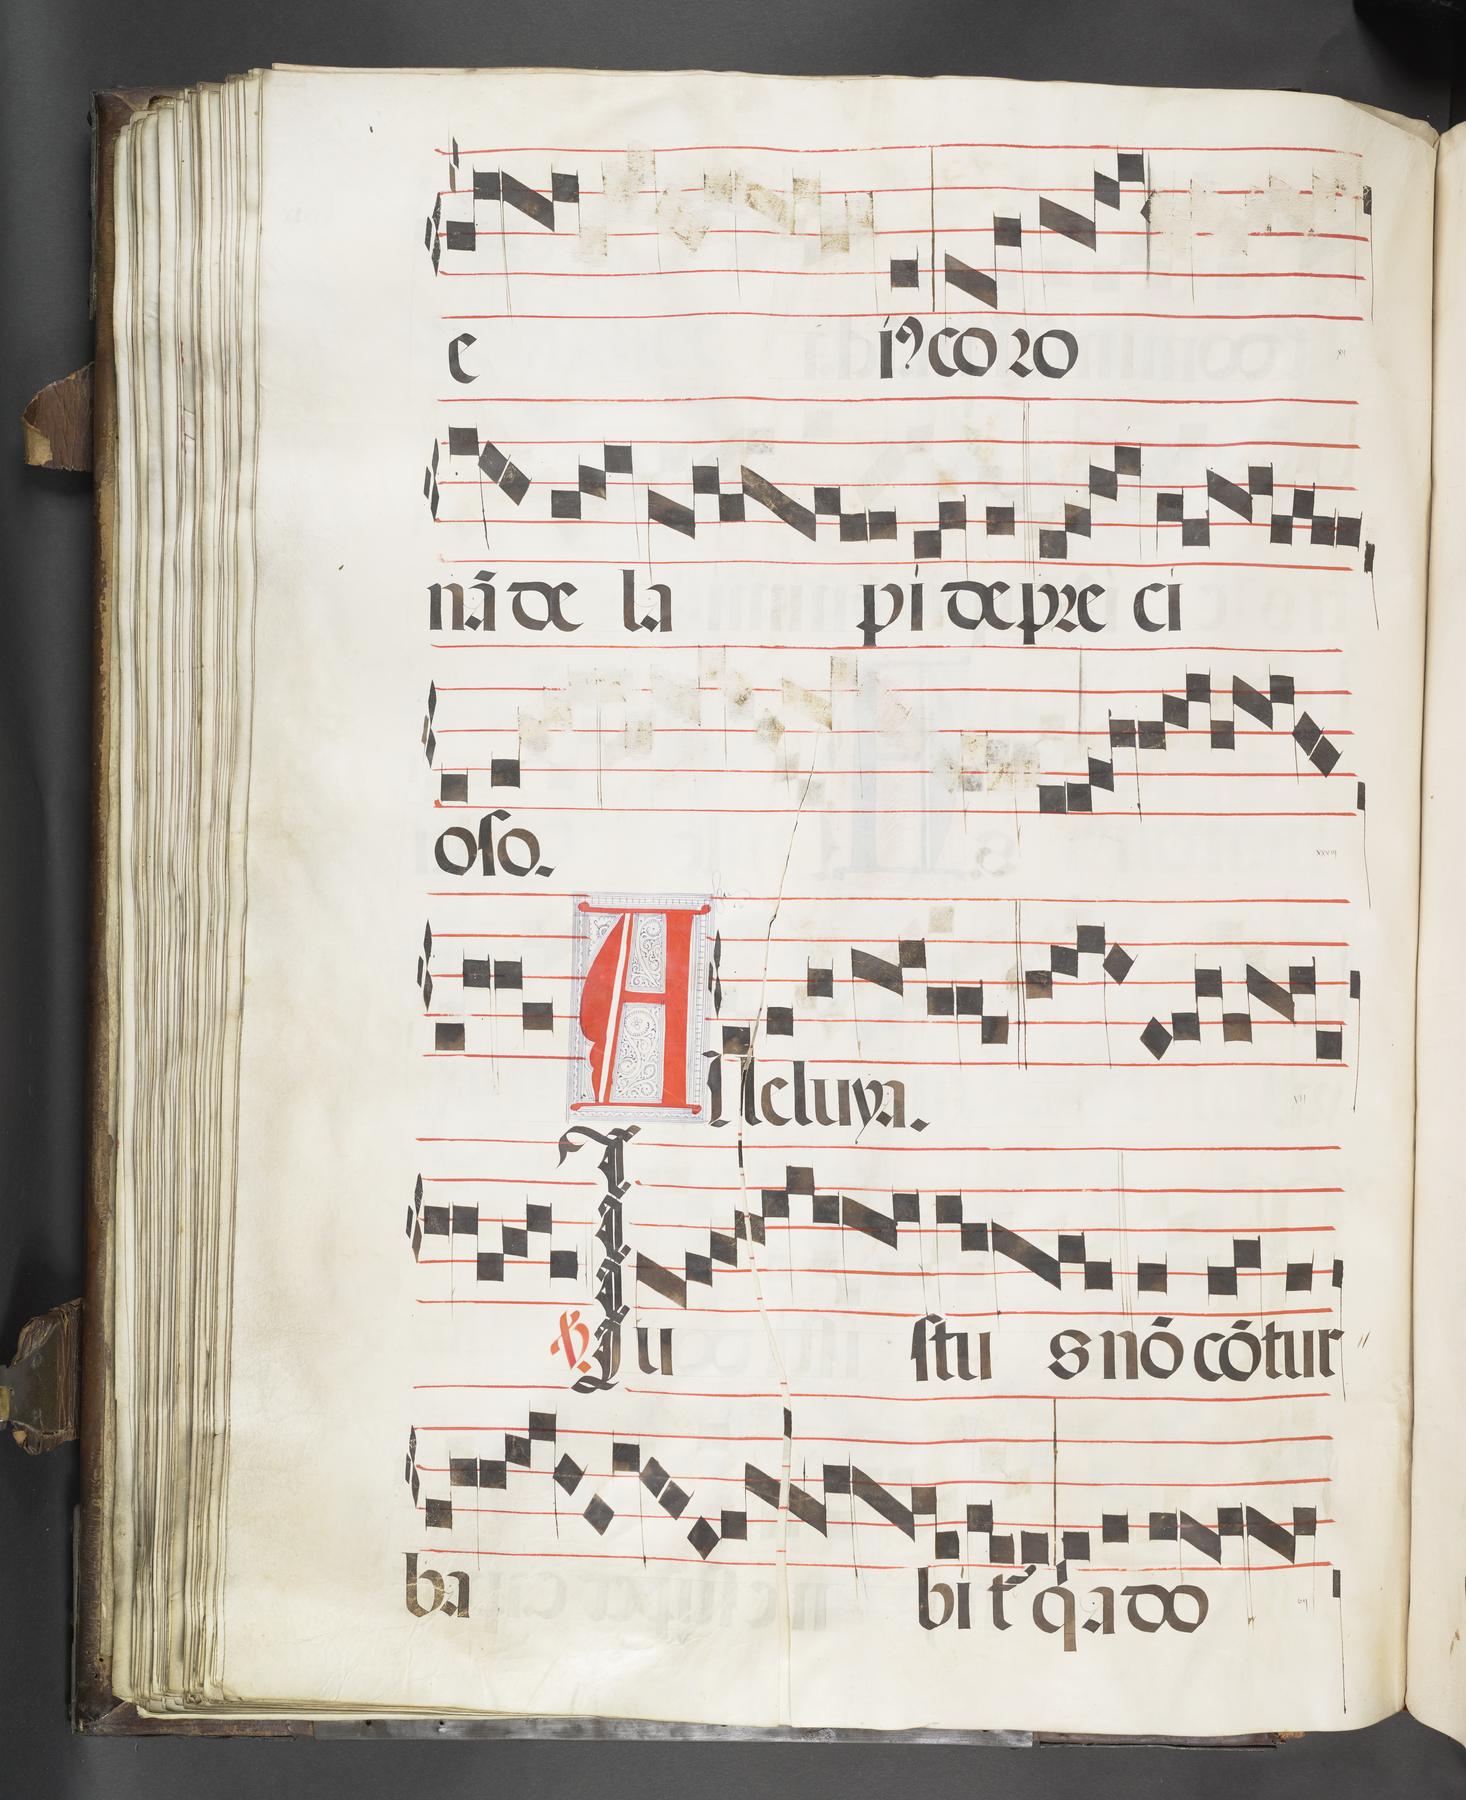 e i⁹ co ro
nā de la pi de pre ci
oſo.
Alleluya.
℣. Ju ſtu s nō cōtur
ba bi t' q̄ a do